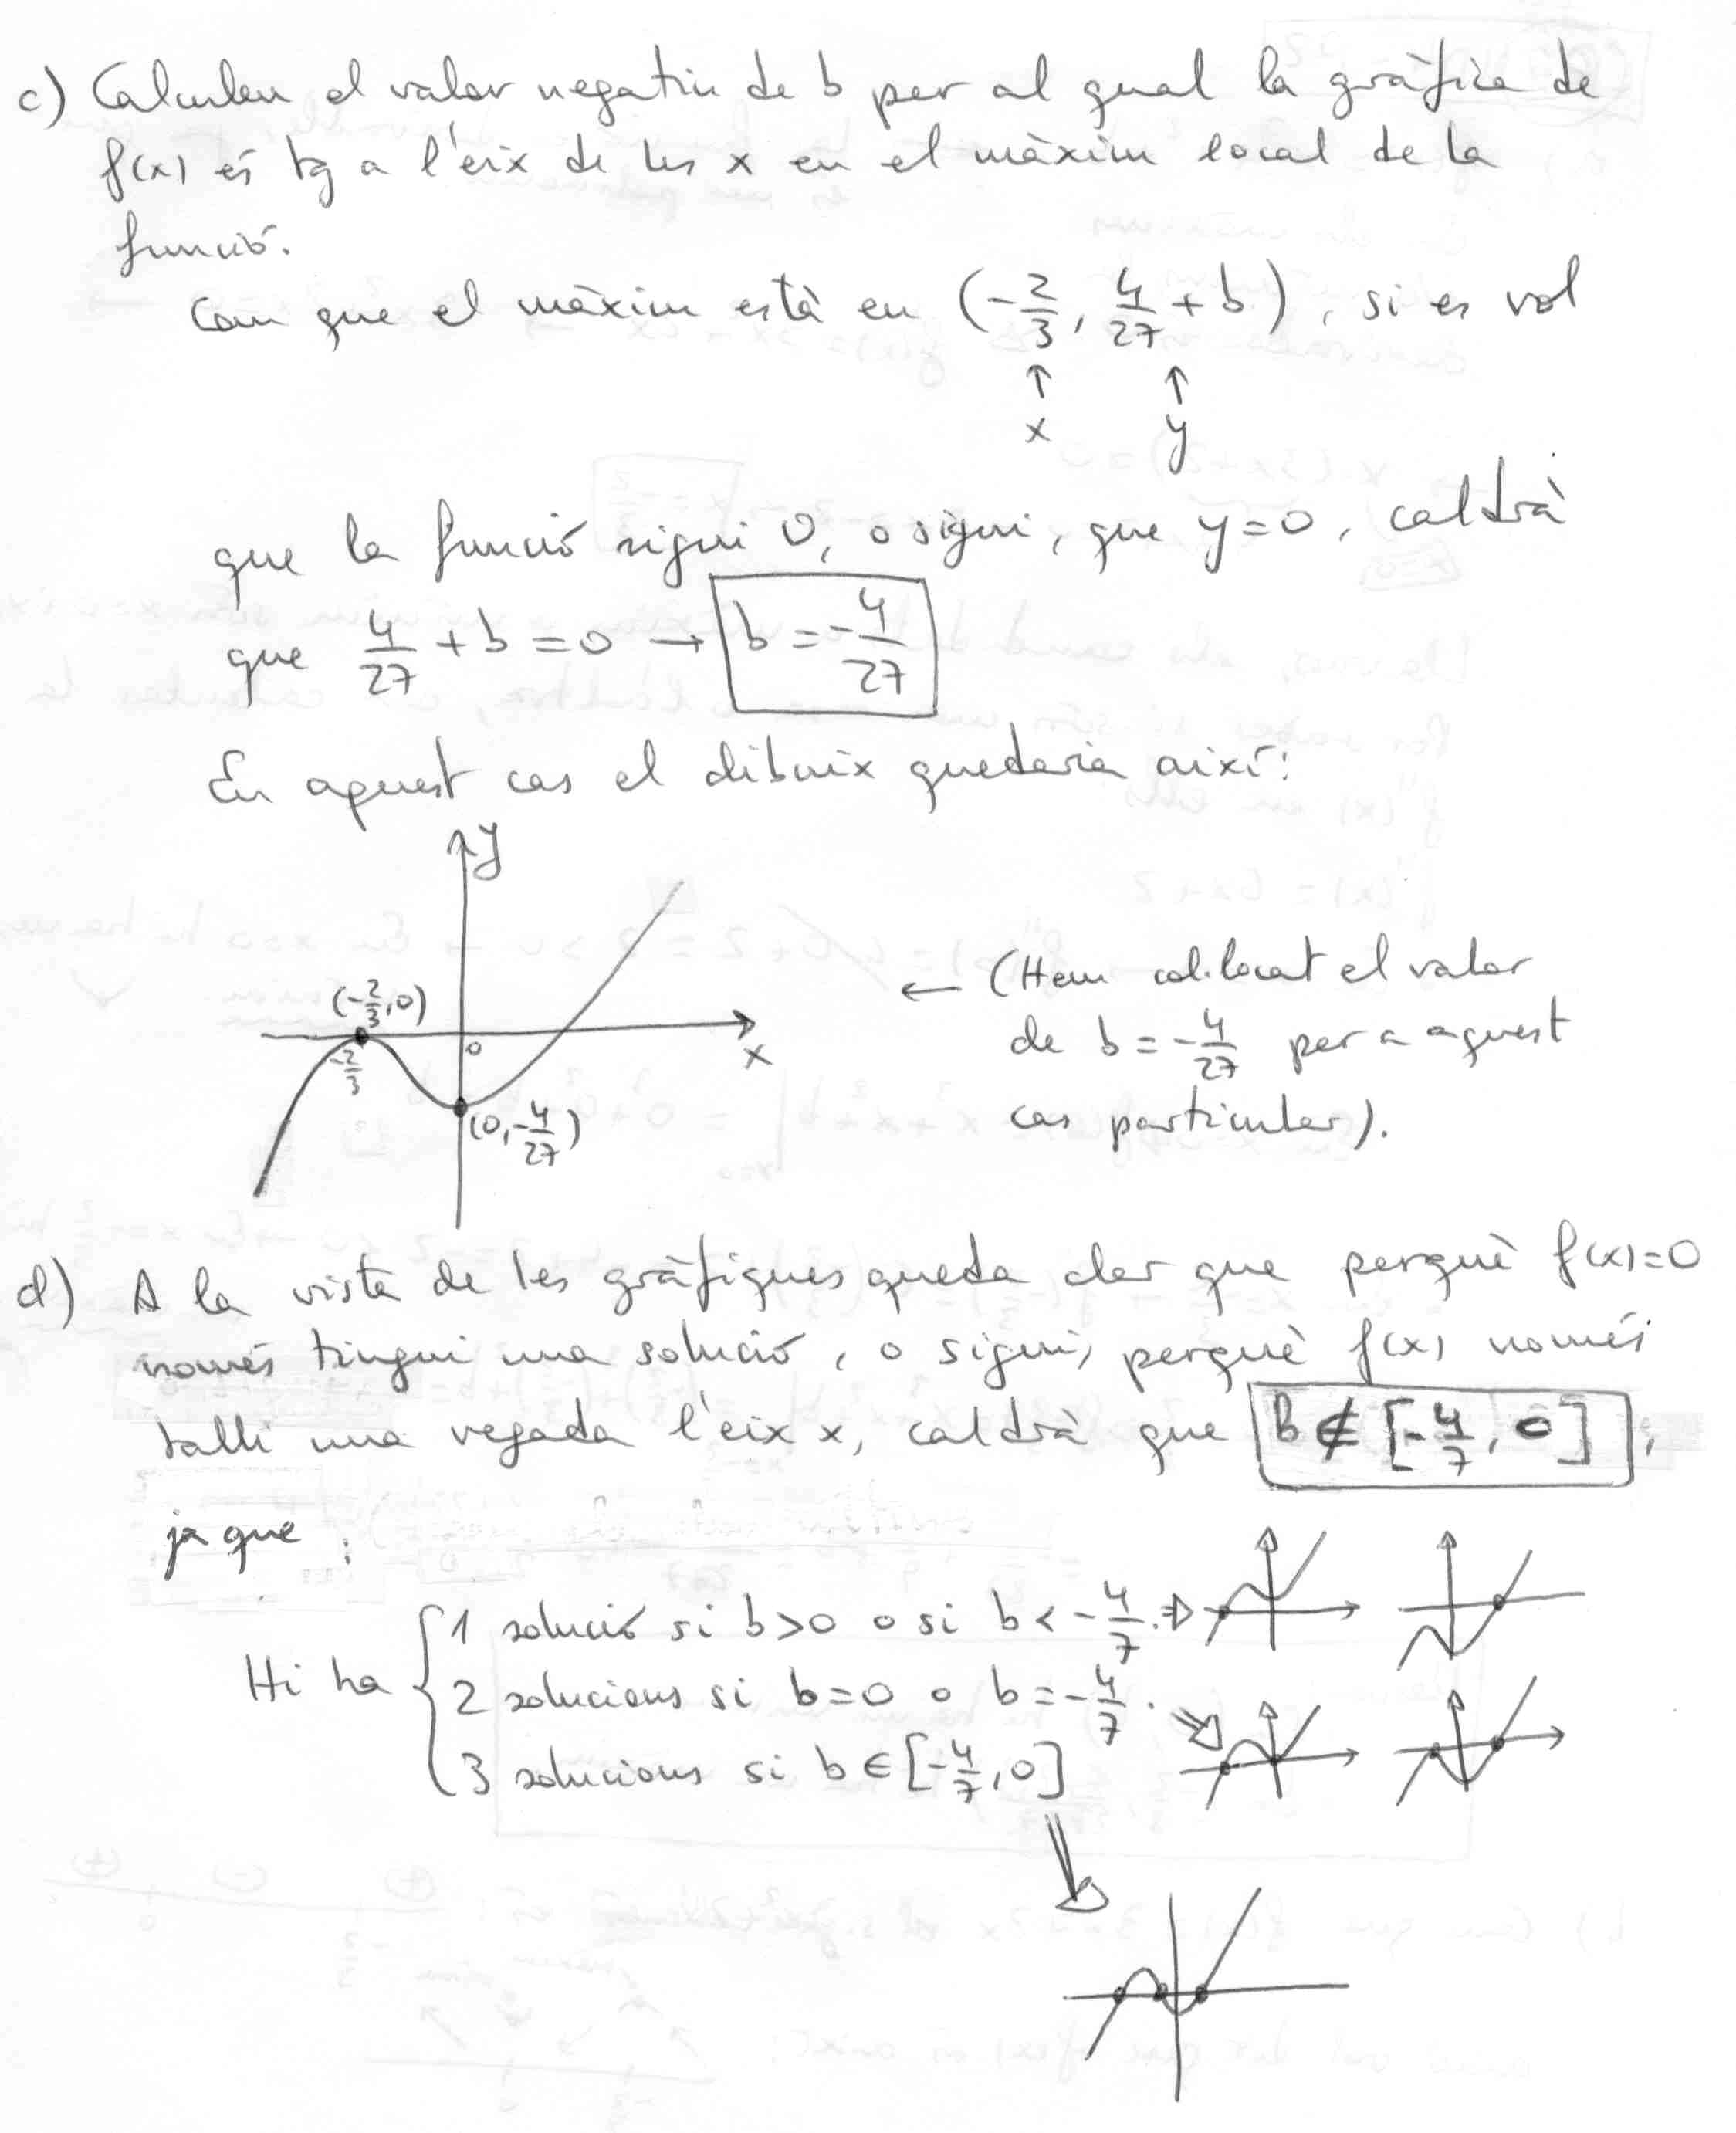 c) Calculeu el valor negatiu de b per al qual la gràfica de
f(x) és tg a l'eix de les x en el màxim local de la
funció.
Com que el màxim està en (-2/3, 4/27 + b), si es vol
↑ ↑
x y
que la funció sigui 0, o sigui, que y=0, caldrà
que 4/27 + b = 0 → b = -4/27
En aquest cas el dibuix quedaria així:
y
(-2/3, 0)
-2/3
0
x
(0, -4/27)
← (Hem col·locat el valor
de b = -4/27 per a aquest
cas particular).
d) A la vista de les gràfiques queda clar que perquè f(x)=0
només tingui una solució, o sigui, perquè f(x) només
talli una vegada l'eix x, caldrà que b ∉ [-4/7, 0],
ja que:
Hi ha { 1 solució si b>0 o si b < -4/7. ⇒
2 solucions si b=0 o b=-4/7.
3 solucions si b ∈ [-4/7, 0]